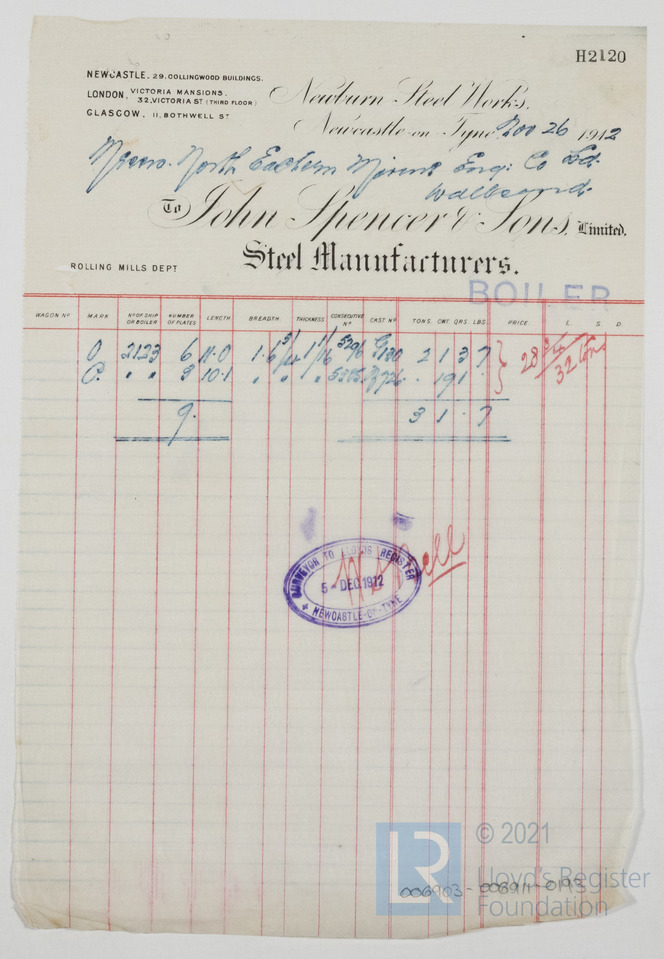 H2120
NEWCASTLE. 29. COLLINGWOOD BUILDINGS.
LONDON. VICTORIA MANSIONS.
32, VICTORIA ST (THIRD FLOOR)
GLASGOW. 11, BOTHWELL ST
Newburn Steel Works,
Newcastle-on Tyne Nov 26 1912
Messrs. North Eastern Marine Eng: Co Ld.
Wallsend.
To John Spencer & Sons, Limited.
Steel Manufacturers.
ROLLING MILLS DEPT
BOILER
WAGON No MARK No OF SHIP OR BOILER NUMBER OF PLATES LENGTH BREADTH THICKNESS CONSECUTIVE No CAST No TONS. CWT. QRS. LBS. PRICE. £ S D.
O 2123 6 11.0 1.6 1 1/16 2 1 3 7 28
O. " " 3 10.1 " " " . 19 1 . 32 tons
9. 3 1 . 7
SURVEYOR TO LLOYDS REGISTER
5 - DEC. 1912
NEWCASTLE-ON-TYNE
LR
© 2021
Lloyd's Register
Foundation
006903-006911-0193